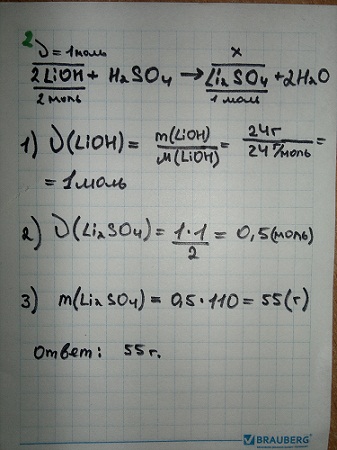 2.
ν = 1 моль x
2LiOH + H2SO4 → Li2SO4 + 2H2O
2 моль 1 моль
1) ν(LiOH) = m(LiOH)/M(LiOH) = 24г/24г/моль =
= 1 моль
2) ν(Li2SO4) = 1·1/2 = 0,5(моль)
3) m(Li2SO4) = 0,5·110 = 55(г)
Ответ: 55г.
BRAUBERG